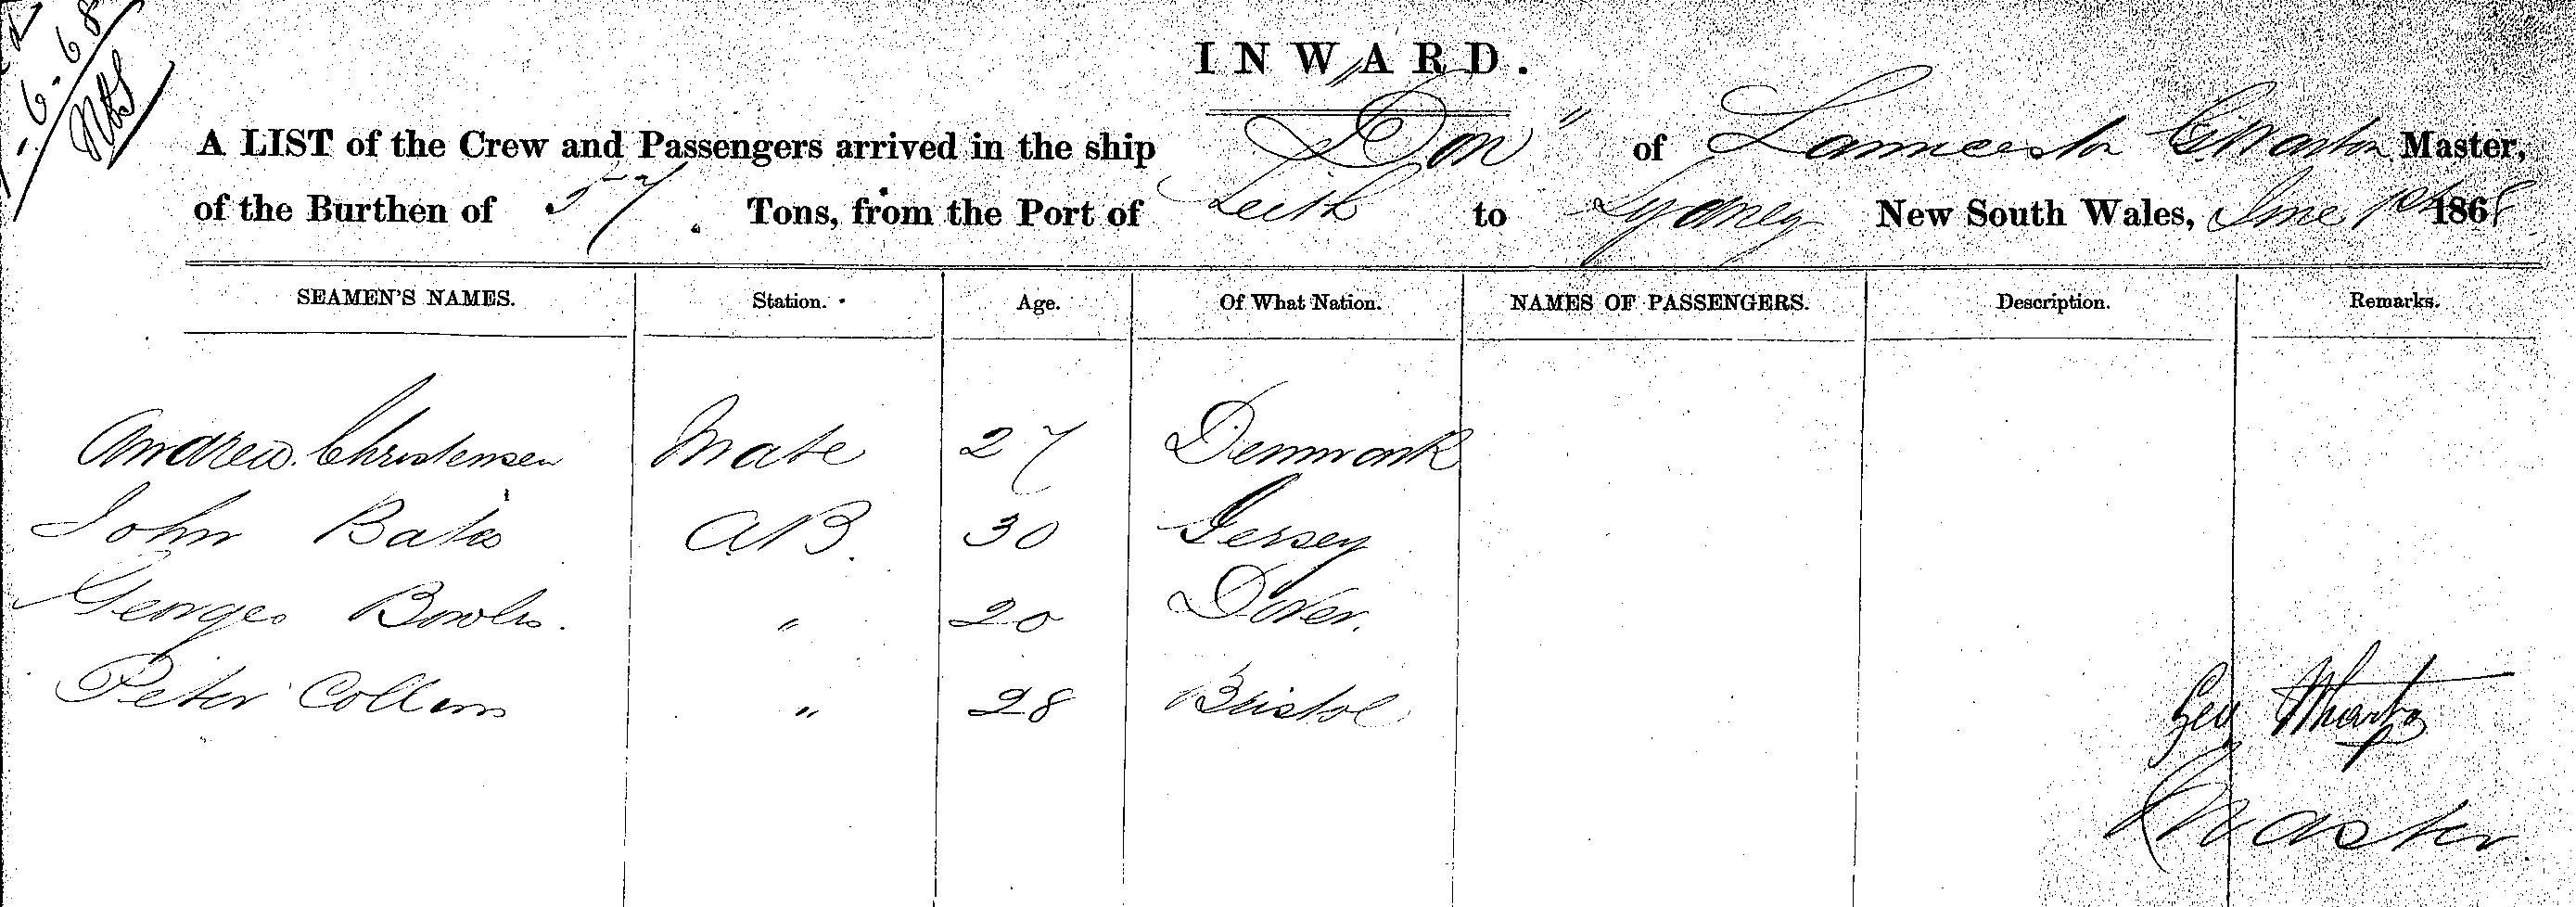 -6-68
INWARD.
A LIST of the Crew and Passengers arrived in the ship "Don" of Launceston G Wharton Master,
of the Burthen of 57. Tons, from the Port of Leith to Sydney New South Wales, June 1st 1868
SEAMEN'S NAMES. Station. Age. Of What Nation. NAMES OF PASSENGERS. Description. Remarks.
Andrew Christensen Mate 27 Denmark
John Bates AB. 30 Jersey
George Bowles. " 20 Dover.
Peter Collins " 28 Bristol
Geo Wharton
Master